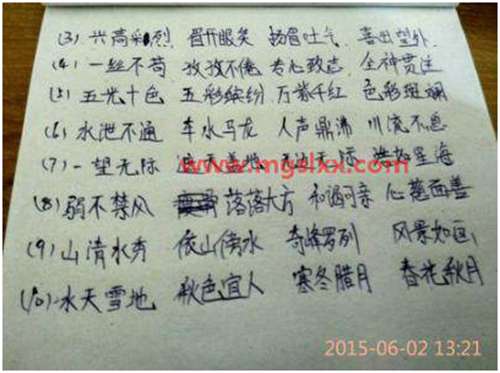 (3) 兴高彩烈 眉开眼笑 扬眉吐气 喜出望外
(4) 一丝不苟 孜孜不倦 专心致志 全神贯注
(5) 五光十色 五彩缤纷 万紫千红 色彩斑斓
(6) 水泄不通 车水马龙 人声鼎沸 川流不息
(7) 一望无际
www.mgslxx.com
(8) 弱不禁风 落落大方 和蔼可亲 心慈面善
(9) 山清水秀 依山傍水 奇峰罗列 风景如画
(10) 水天雪地 秋色宜人 寒冬腊月 春花秋月
2015-06-02 13:21